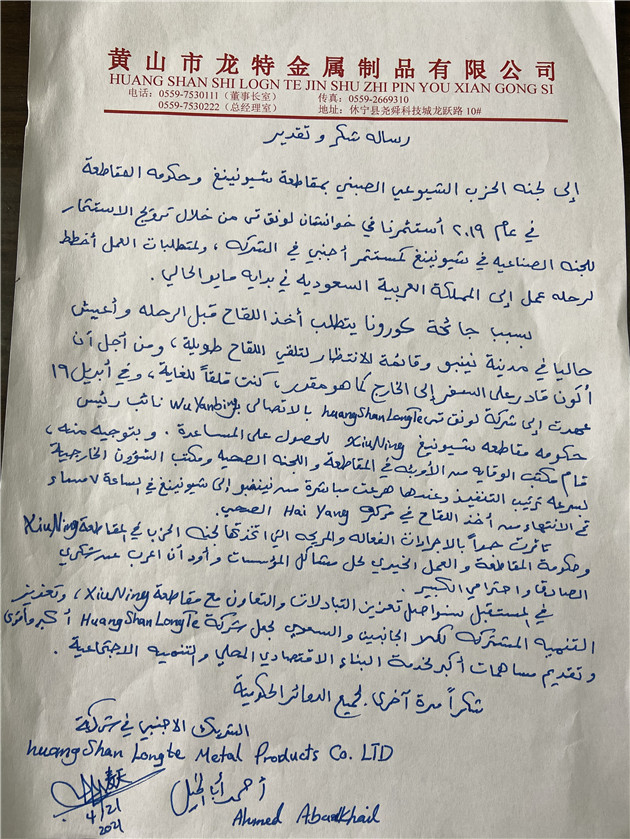 黄山市龙特金属制品有限公司
HUANG SHAN SHI LOGN TE JIN SHU ZHI PIN YOU XIAN GONG SI
电话：0559-7530111（董事长室） 传真：0559-2669310
0559-7530222（总经理室） 地址：休宁县尧舜科技城龙跃路 10#
رساله شكر و تقدير
إلى لجنه الحزب الشيوعي الصيني بمقاطعة شيونينغ و حكومه المقاطعة
في عام ٢٠١٩ أستثمرنا في خوانتشان لونق تى من خلال ترويج الاستثمار
للجنه الصناعيه في شيونينغ كمستثمر أجنبي في الشركه ، ولمتطلبات العمل أخطط
لرحله عمل إلى المملكة العربية السعوديه في بدايه مايو الحالي .
بسبب جائحة كورونا يتطلب أخذ اللقاح قبل الرحله و أعيش
حاليا في مدينة نينبو وقائمة الانتظار لتلقي اللقاح طويلة ، ومن آجل آن
أكون قادر على السفر إلى الخارج كما هو مقدر ، كنت قلقاً للغاية ، وفي أبريل ١٩
عهدت إلى شركة لونق تى huangShanLongTe بالاتصال ب Wu Yanbing نائب رئيس
حكومه مقاطعه شيونيغ XiuNing للحصول على المساعدة . و بتوجيه منه ،
قام مكتب الوقايه من الأوبئه في المقاطعة و اللجنه الصحيه ومكتب الشؤون الخارجية
بسرعه ترتيب التنفيذ وعندها هرعت مباشرة من نينغبو إلى شيونينغ في الساعة ٧ مساء
تم الانتهاء من أخذ اللقاح في مركز Hai Yang الصحي .
تأثرت جداً بالاجراءات الفعاله والمريحه التي اتخذتها لجنه الحزب في مقاطعة XiuNing
وحكومة المقاطعة و العمل الخيري لحل مشاكل المؤسسات و أود أن اعرب عن شكري
الصادق و احترامي الكبير .
في المستقبل سنواصل تعزيز التبادلات والتعاون مع مقاطعة XiuNing ، وتعزيز
التنميه المشتركه لكلا الجانبين والسعي لجعل شركة HuangShanLongTe أكبر وأقوى
و تقديم مساهمات أكبر لخدمة البناء الاقتصادي المحلي و التنميه الاجتماعية .
شكراً مرة آخرى لجميع الدوائر الحكومية
الشريك الاجنبي في شركة
huangShan Longte Metal Products Co. LTD
أحمد أباالخيل
4/21
2021
Ahmed Abaalkhail